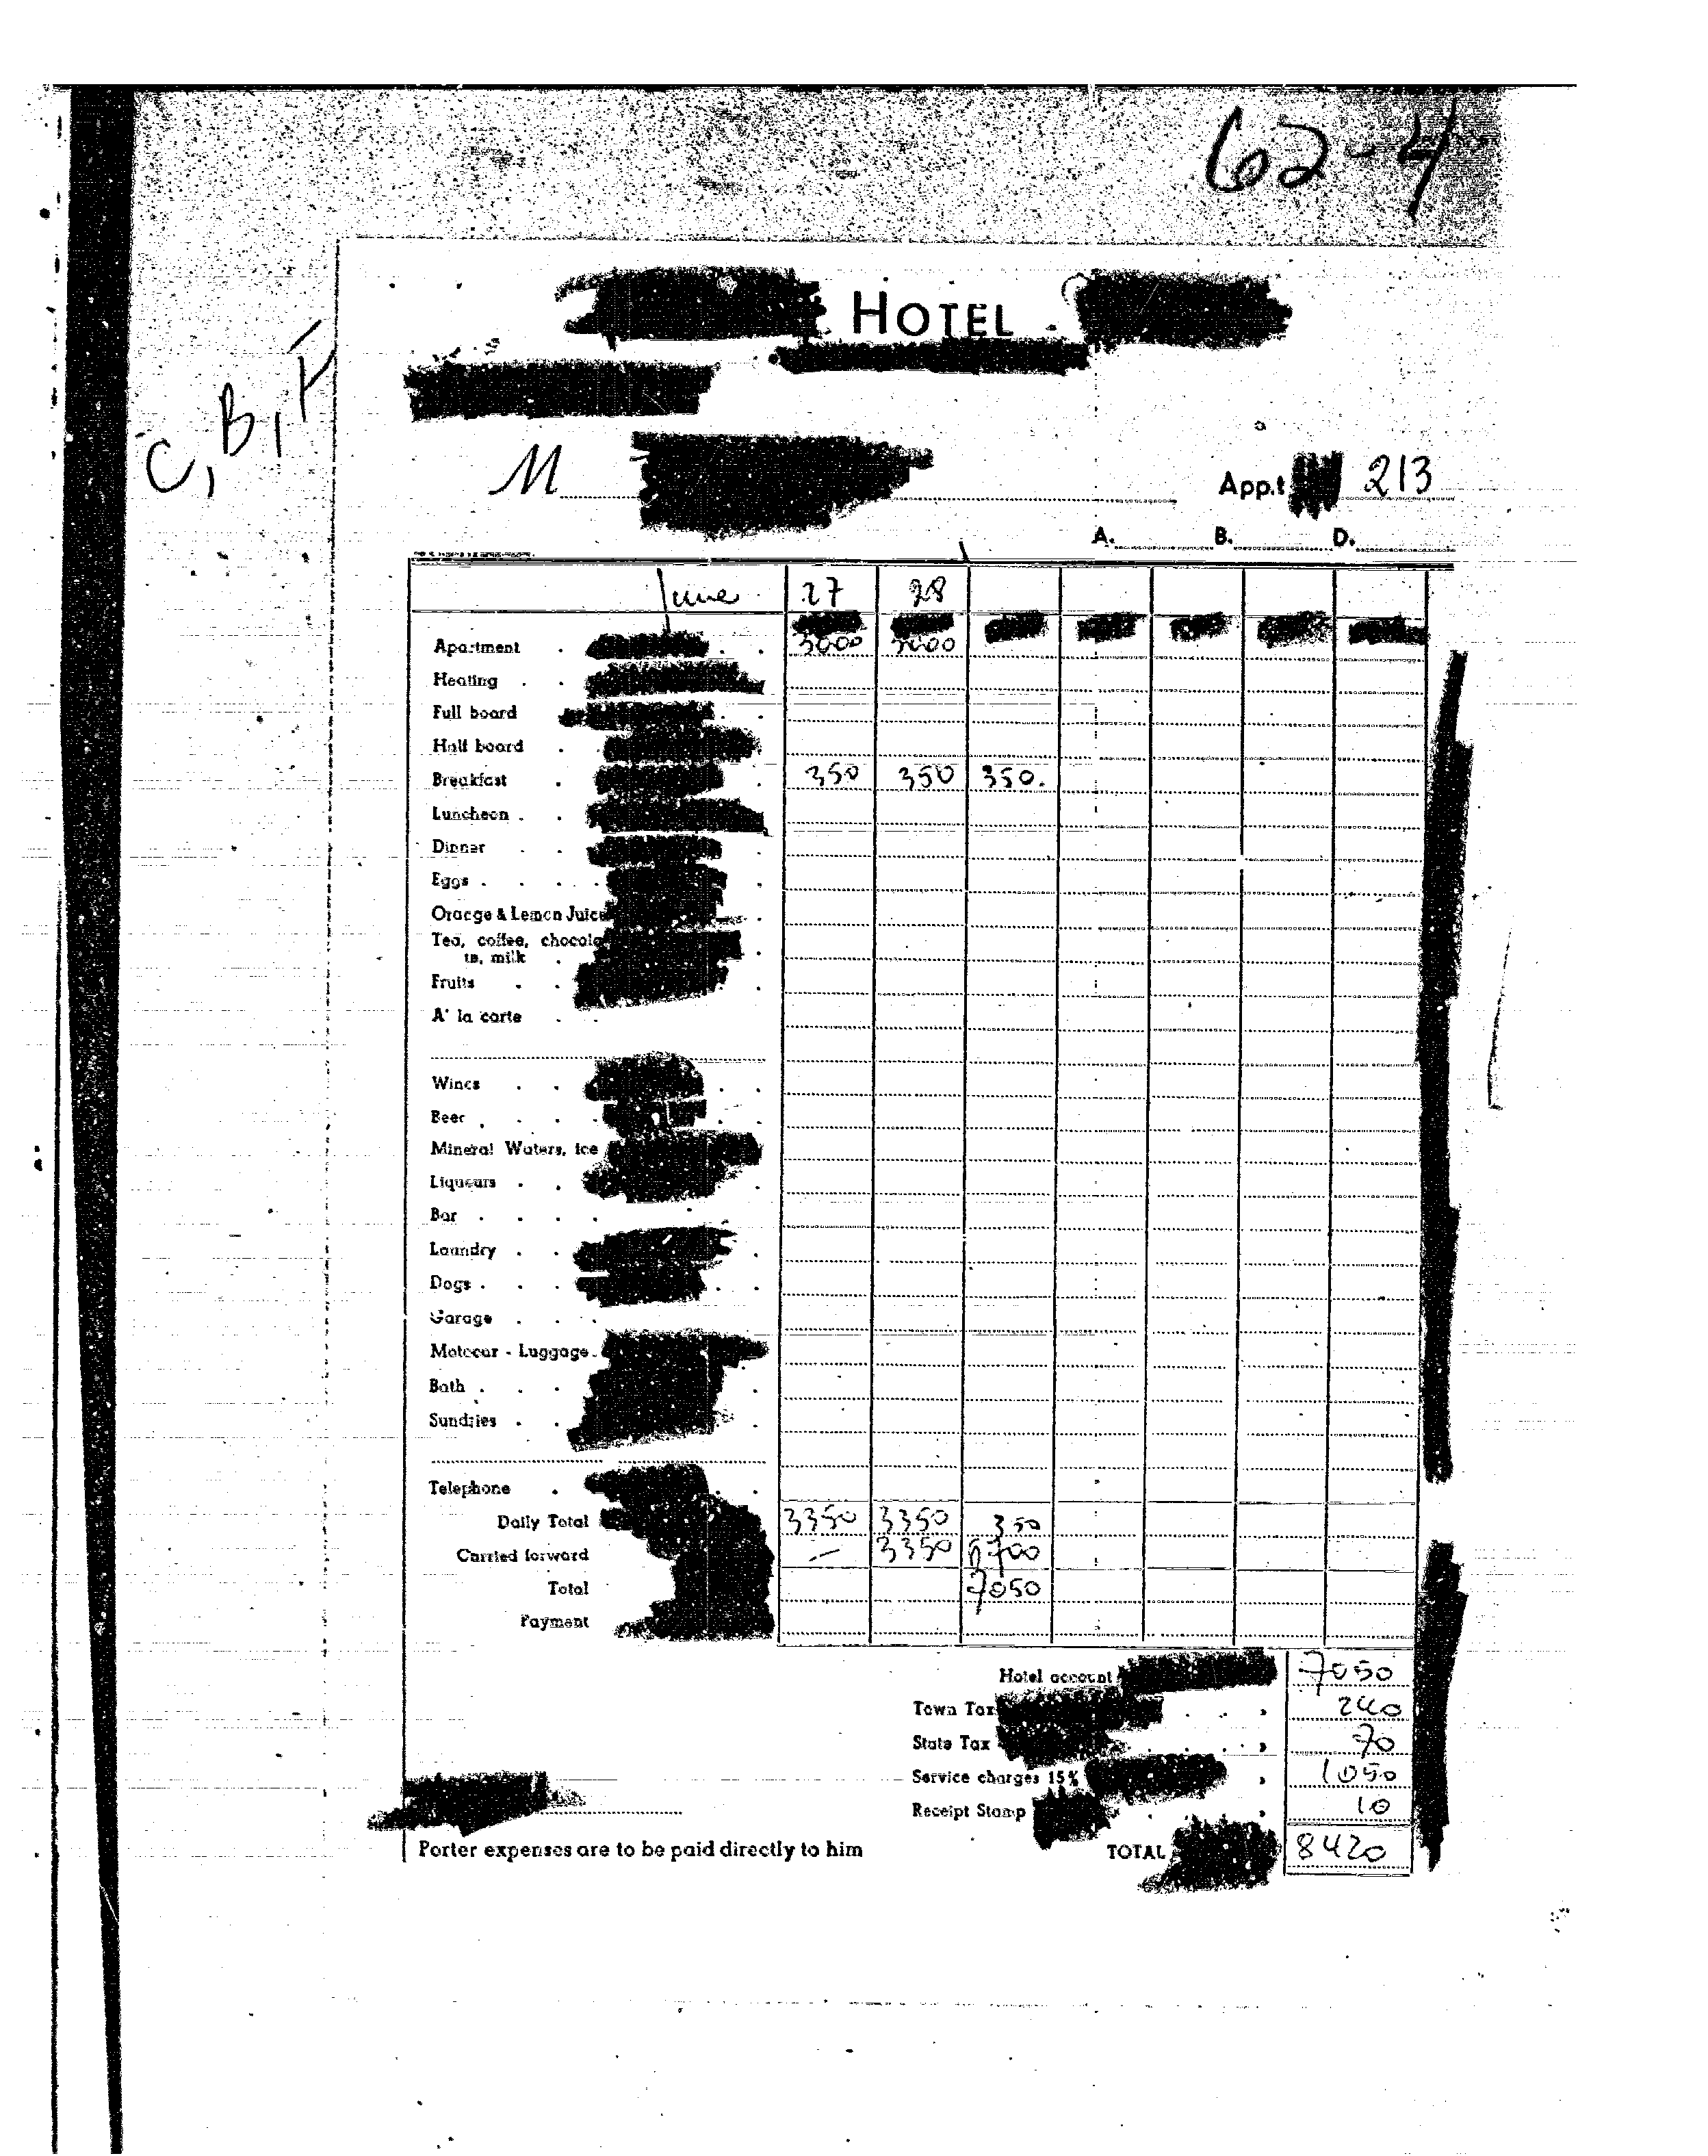 62-4
HOTEL
C, B, F
M
App.t 213
A. B. D.
June 27 28
Apartment 3000 3000
Heating
Full board
Half board
Breakfast 350 350 350.
Luncheon
Dinner
Eggs
Orange & Lemon Juice
Tea, coffee, chocola
te, milk
Fruits
A' la carte
Wines
Beer
Mineral Waters, ice
Liqueurs
Bar
Laundry
Dogs
Garage
Motocar - Luggage
Bath
Sundries
Telephone
Daily Total 3350 3350 350
Carried forward — 3350 6700
Total 7050
Payment
Hotel account 7050
Town Tax 240
State Tax 70
Service charges 15% 1050
Receipt Stamp 10
Porter expenses are to be paid directly to him
TOTAL 8420